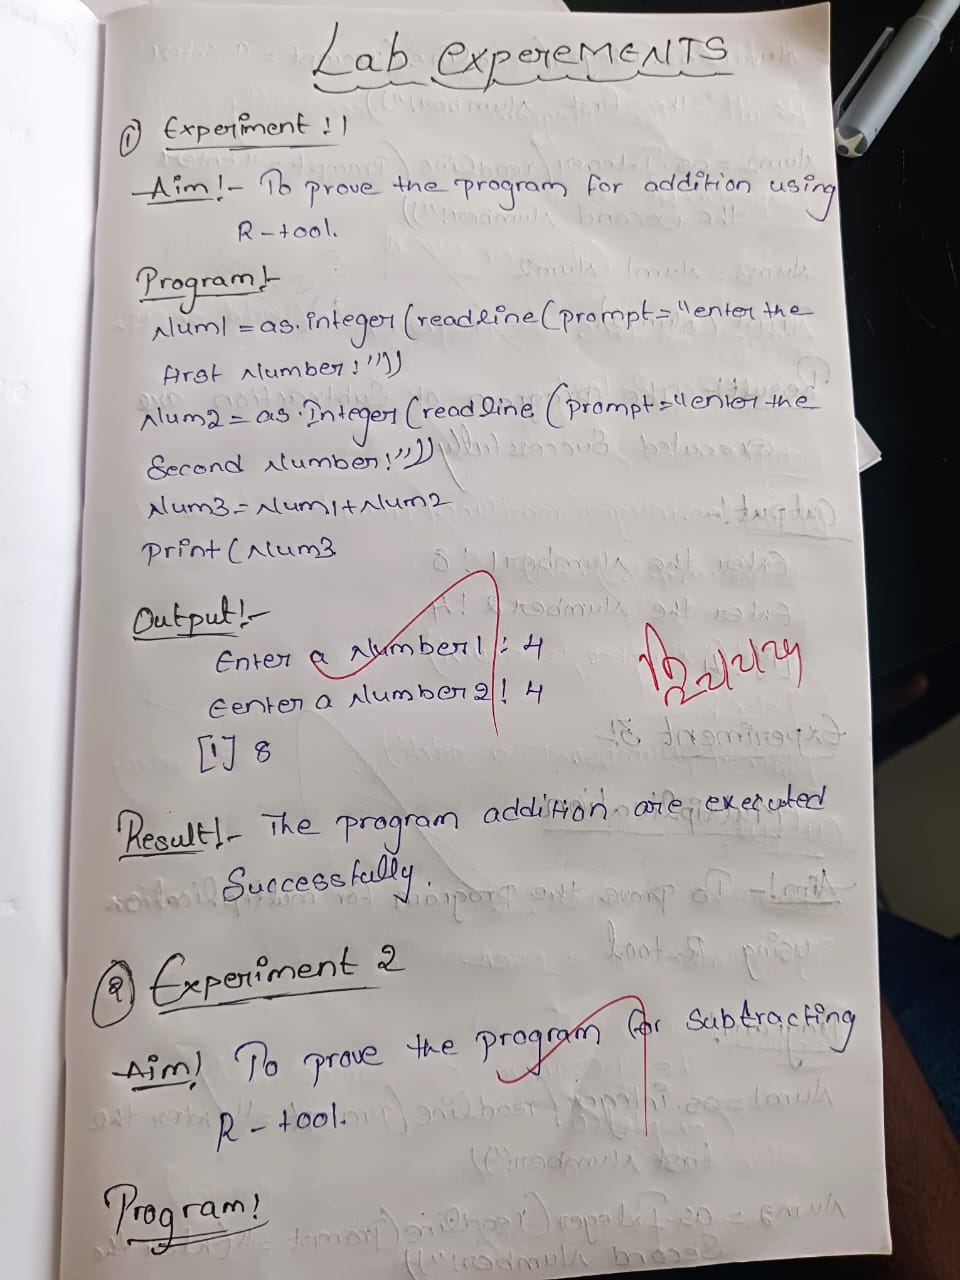 Lab experEMENTS
① Experiment : 1
Aim :- To prove the program for addition using
R - tool.
Program :-
Num1 = as.integer (readline (prompt = "enter the
first Number : "))
Num2 = as.Integer (readline (prompt = "enter the
Second Number : "))
Num3 = Num1 + Num2
print (Num3
Output :-
Enter a Number 1 : 4
Eenter a Number 2 : 4
[1] 8
Result :- The program addition are executed
Successfully.
② Experiment 2
Aim : To prove the program for Subtracting
R - tool.
Program :